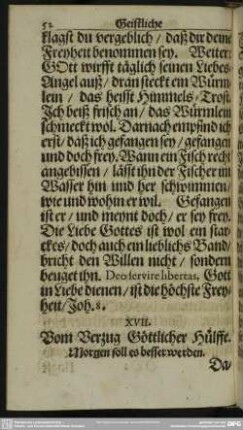 52 Geistliche
klagst du vergeblich / daß dir deine
Freyheit benommen sey. Weiter:
GOtt wirfft täglich seinen Liebes-
Angel auß / dran steckt ein Würm-
lein / das heisst Himmels-Trost.
Ich beiß frisch an / das Würmlein
schmeckt wol. Darnach empfind ich
erst / daß ich gefangen sey / gefangen
und doch frey. Wann ein Fisch recht
angebissen / lässt ihn der Fischer im
Wasser hin und her schwimmen /
wie und wohin er wil. Gefangen
ist er / und meynt doch / er sey frey.
Die Liebe Gottes ist wol ein star-
ckes / doch auch ein lieblichs Band /
bricht den Willen nicht / sondern
beuget ihn. Deo servire libertas, Gott
in Liebe dienen / ist die höchste Frey-
heit / Joh. 8.
XVII.
Vom Verzug Göttlicher Hülffe.
Morgen soll es besser werden.
Da-